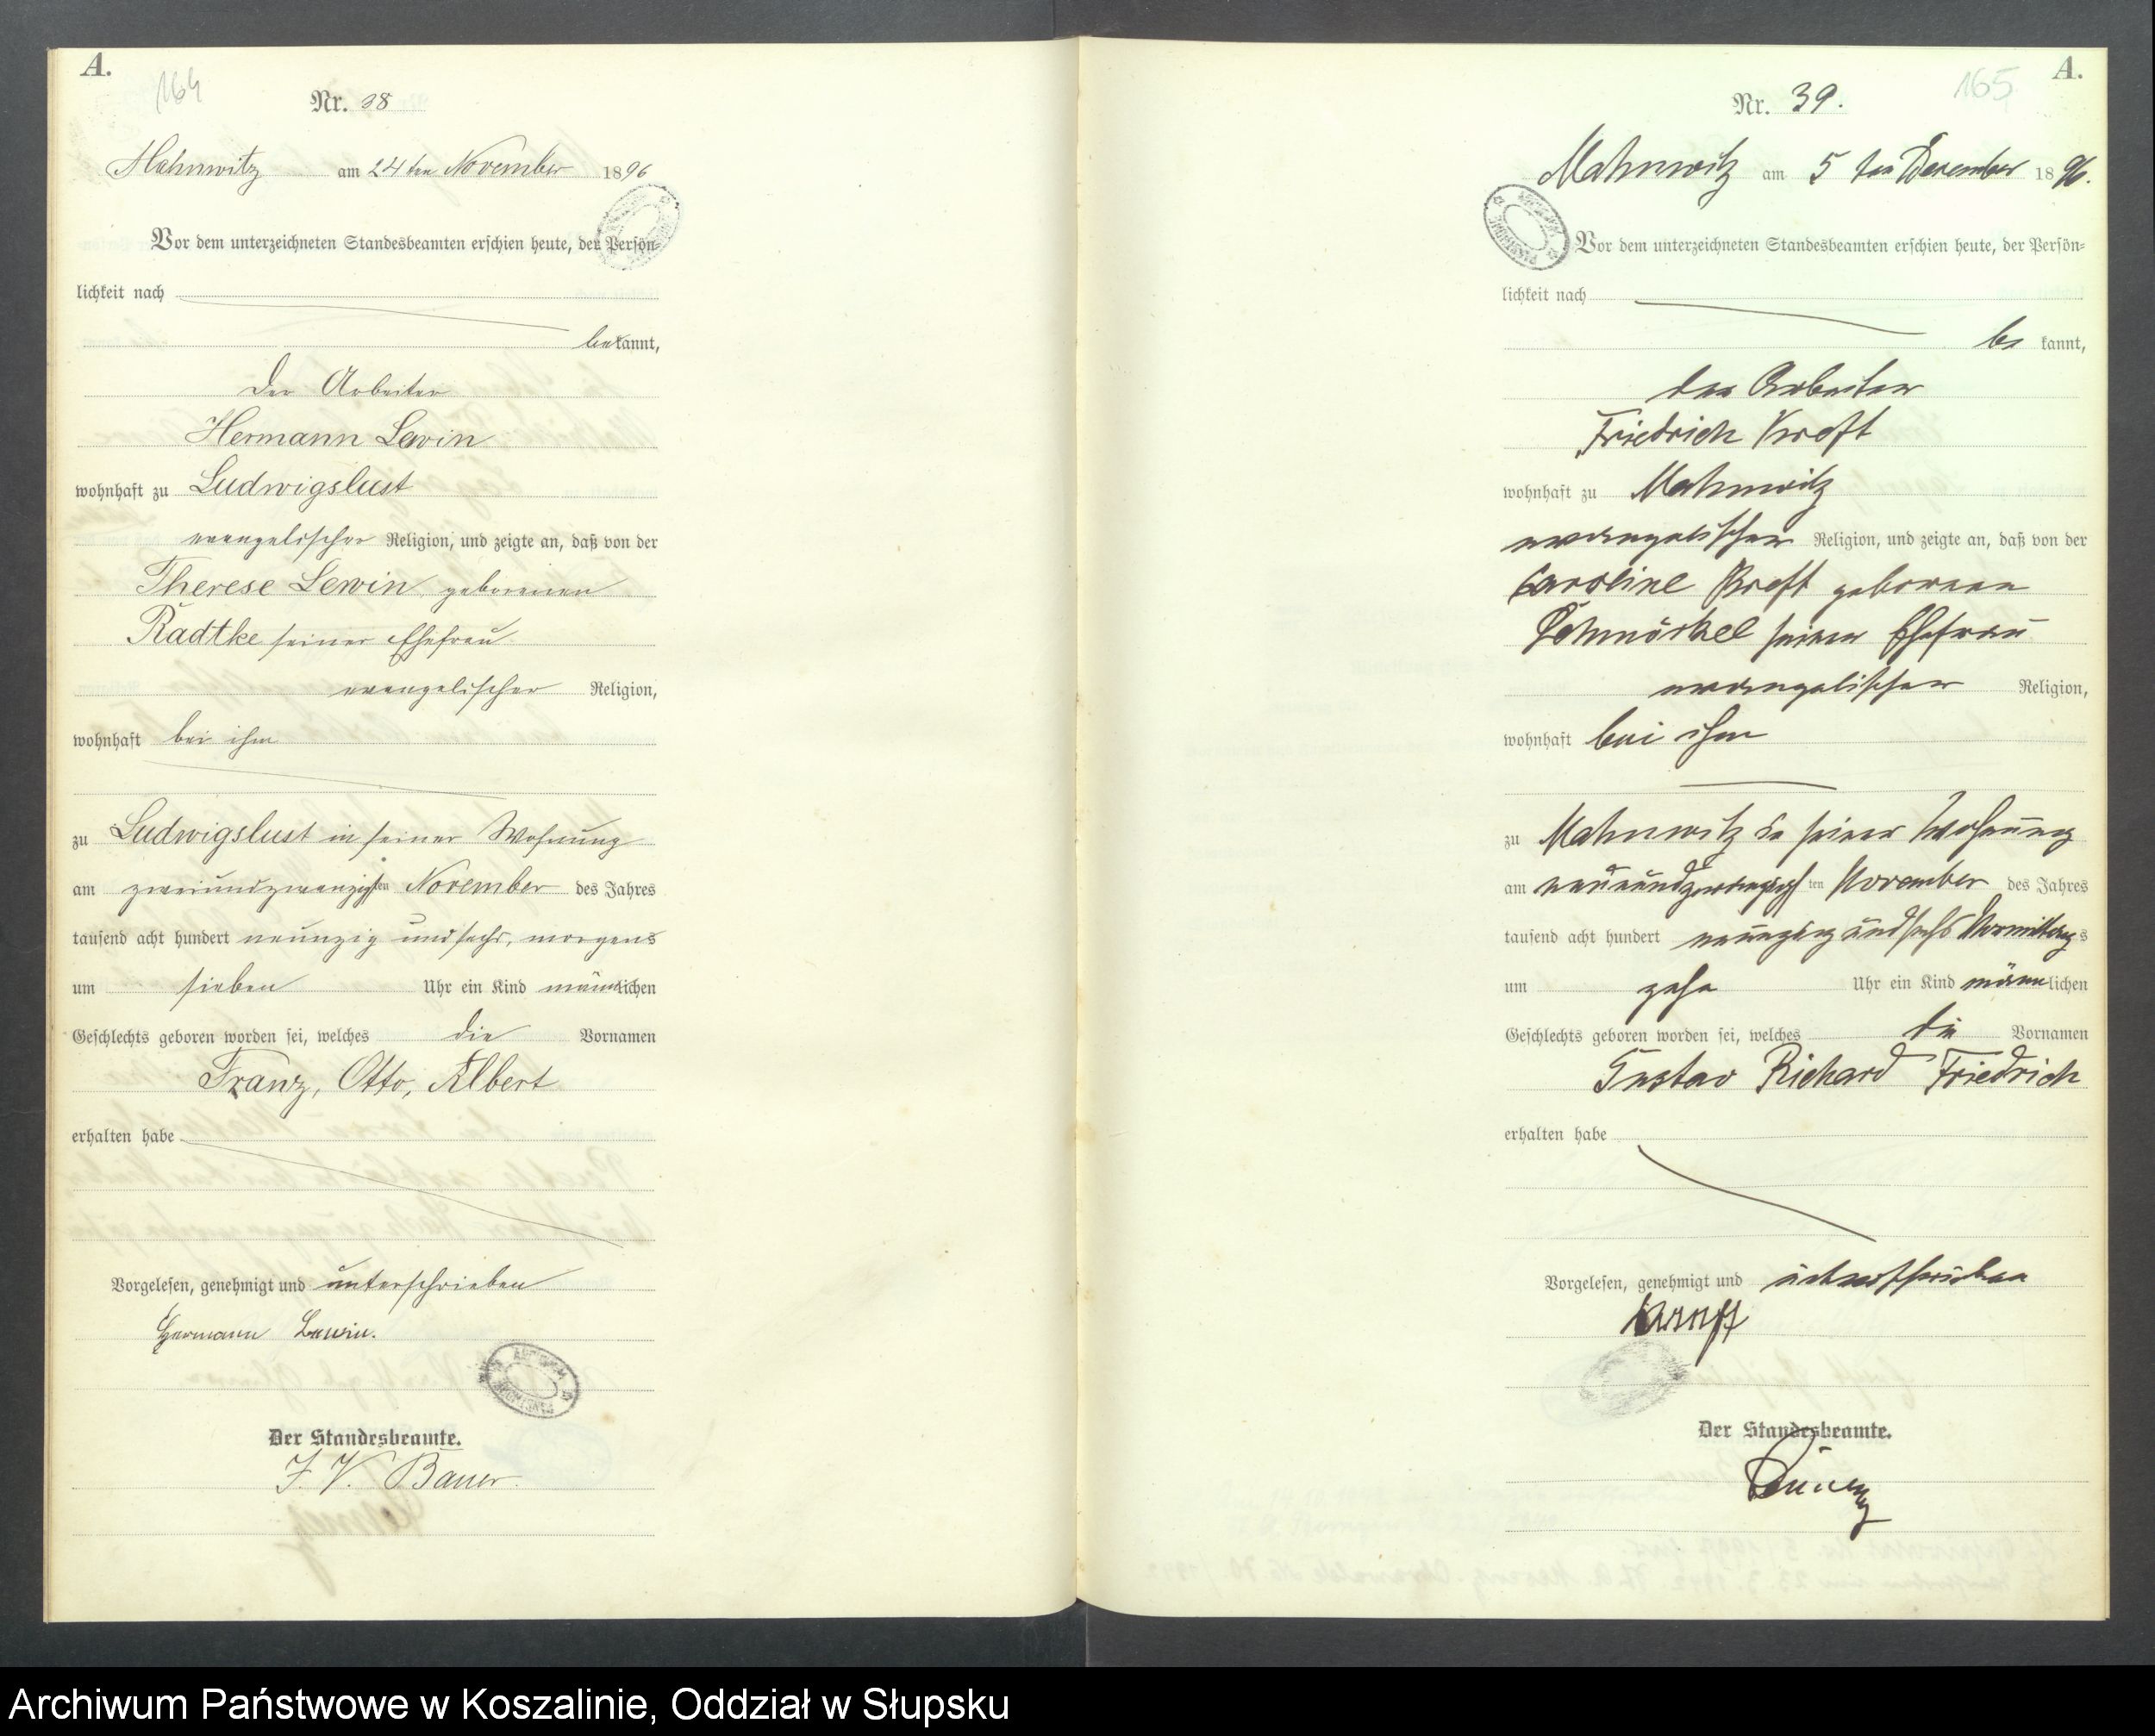 A.
164
Nr. 38
Mahnwitz am 24ten November 1896
Vor dem unterzeichneten Standesbeamten erschien heute, der Persön=
lichkeit nach
bekannt,
der Arbeiter
Hermann Lewin
wohnhaft zu Ludwigslust
evangelischer Religion, und zeigte an, daß von der
Therese Lewin geborenen
Radtke seiner Ehefrau
evangelischer Religion,
wohnhaft bei ihm
zu Ludwigslust in seiner Wohnung
am zweiundzwanzigsten November des Jahres
tausend acht hundert neunzig und sechs, morgens
um sieben Uhr ein Kind männlichen
Geschlechts geboren worden sei, welches die Vornamen
Franz, Otto, Albert
erhalten habe
Vorgelesen, genehmigt und unterschrieben
Hermann Lewin.
Der Standesbeamte.
J. V. Bauer.
A.
165
Nr. 39.
Mahnwitz am 5 ten Dezember 1896.
Vor dem unterzeichneten Standesbeamten erschien heute, der Persön=
lichkeit nach
be kannt,
der Arbeiter
Friedrich Kroft
wohnhaft zu Mahnwitz
evangelischer Religion, und zeigte an, daß von der
Caroline Kroft geborenen
Schmöckel seiner Ehefrau
evangelischer Religion,
wohnhaft bei ihm
zu Mahnwitz in seiner Wohnung
am neunundzwanzigsten November des Jahres
tausend acht hundert neunzig und sechs Vormittags
um zehn Uhr ein Kind männlichen
Geschlechts geboren worden sei, welches die Vornamen
Gustav Richard Friedrich
erhalten habe
Vorgelesen, genehmigt und unterschrieben
Der Standesbeamte.
Archiwum Państwowe w Koszalinie, Oddział w Słupsku